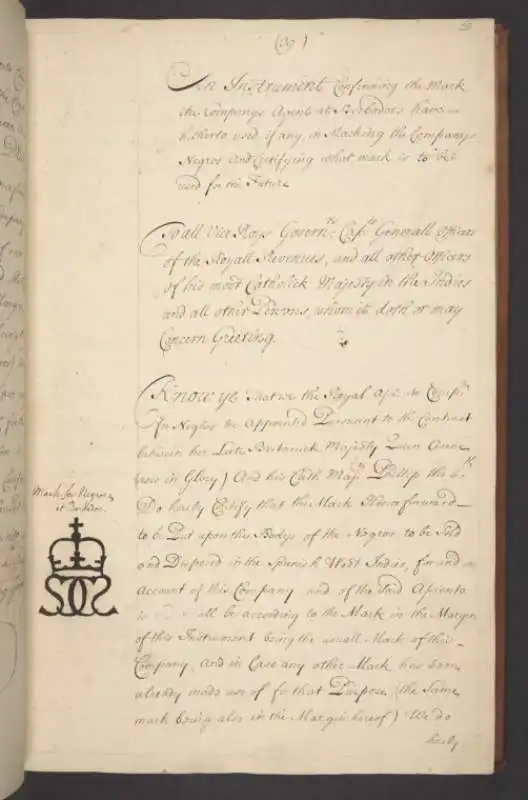 (39)
An Instrument Confirming the Mark
the Companys Agents at Barbadoes have
hitherto used if any, in Marking the Companys
Negros and Certifying what mark is to be
used for the Future
To all Vice Roys Govern.rs Cap.ts Generall Officers
of the Royall Revenues, and all other Officers
of his most Catholick Majesty in the Indies
and all other Persons, whom it doth or may
Concern Greeting.
Know ye That we the Royal Assiento Comp.a
for Negros be Appointed Pursuant to the Contract
between her Late Britanick Majesty Queen Anne
(now in Glory) And his Cath. Maj.ty Phillip the 5.th
Do hereby Certify that the Mark Henceforward
to be Put upon the Bodys of the Negros to be Sold
and Dispersed in the Spanish West Indies, for and on
Account of this Company and of the Said Assiento
is shall be according to the Mark in the Margin
of this Instrument being the usuall Mark of this
Company, and in Case any other Mark has been
already made use of for that Purpose (the Same
mark being also in the Margin hereof) We do
hereby
Mark for Negroes